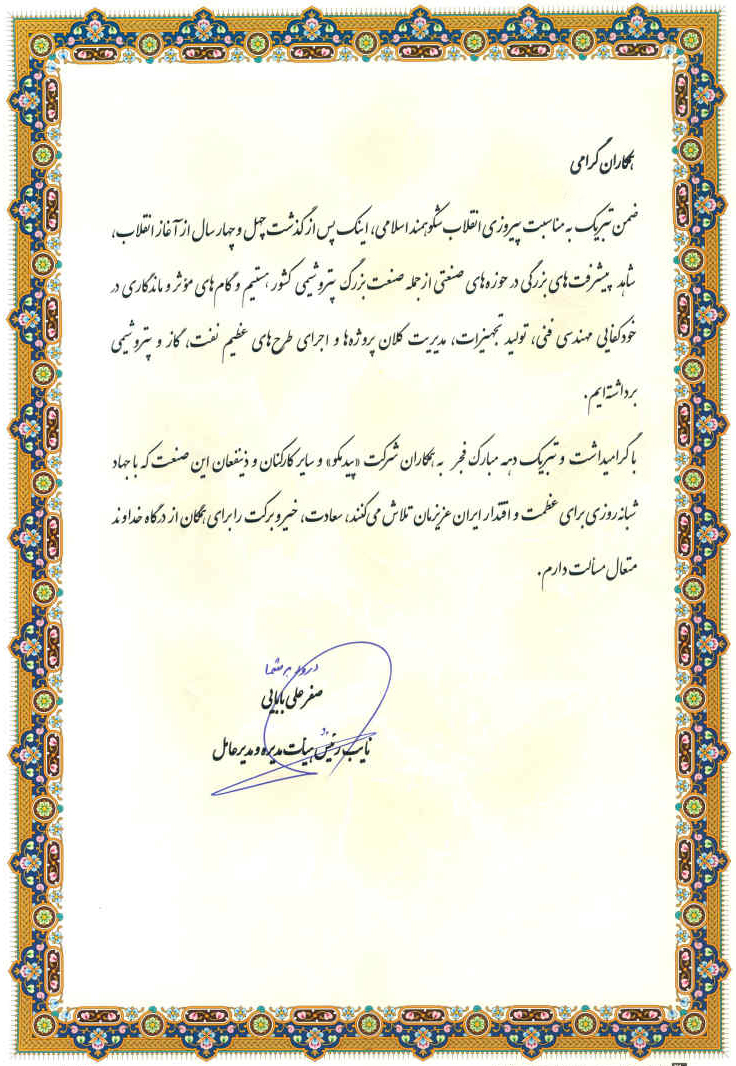 همکاران گرامی
ضمن تبریک به مناسبت پیروزی انقلاب شکوهمند اسلامی، اینک پس از گذشت چهل و چهار سال از آغاز انقلاب،
شاهد پیشرفت‌های بزرگی در حوزه‌های صنعتی از جمله صنعت بزرگ پتروشیمی کشور هستیم و گام‌های مؤثر و ماندگاری در
خودکفایی مهندسی فنی، تولید تجهیزات، مدیریت کلان پروژه‌ها و اجرای طرح‌های عظیم نفت، گاز و پتروشیمی
برداشته‌ایم.
با گرامیداشت و تبریک دهه مبارک فجر به همکاران شرکت «پیدمکو» و سایر کارکنان و ذینفعان این صنعت که با جهاد
شبانه‌روزی برای عظمت و اقتدار ایران عزیزمان تلاش می‌کنند، سعادت، خیر و برکت را برای همگان از درگاه خداوند
متعال مسألت دارم.
درود بر شما
صفرعلی بابایی
نایب رئیس هیأت مدیره و مدیرعامل